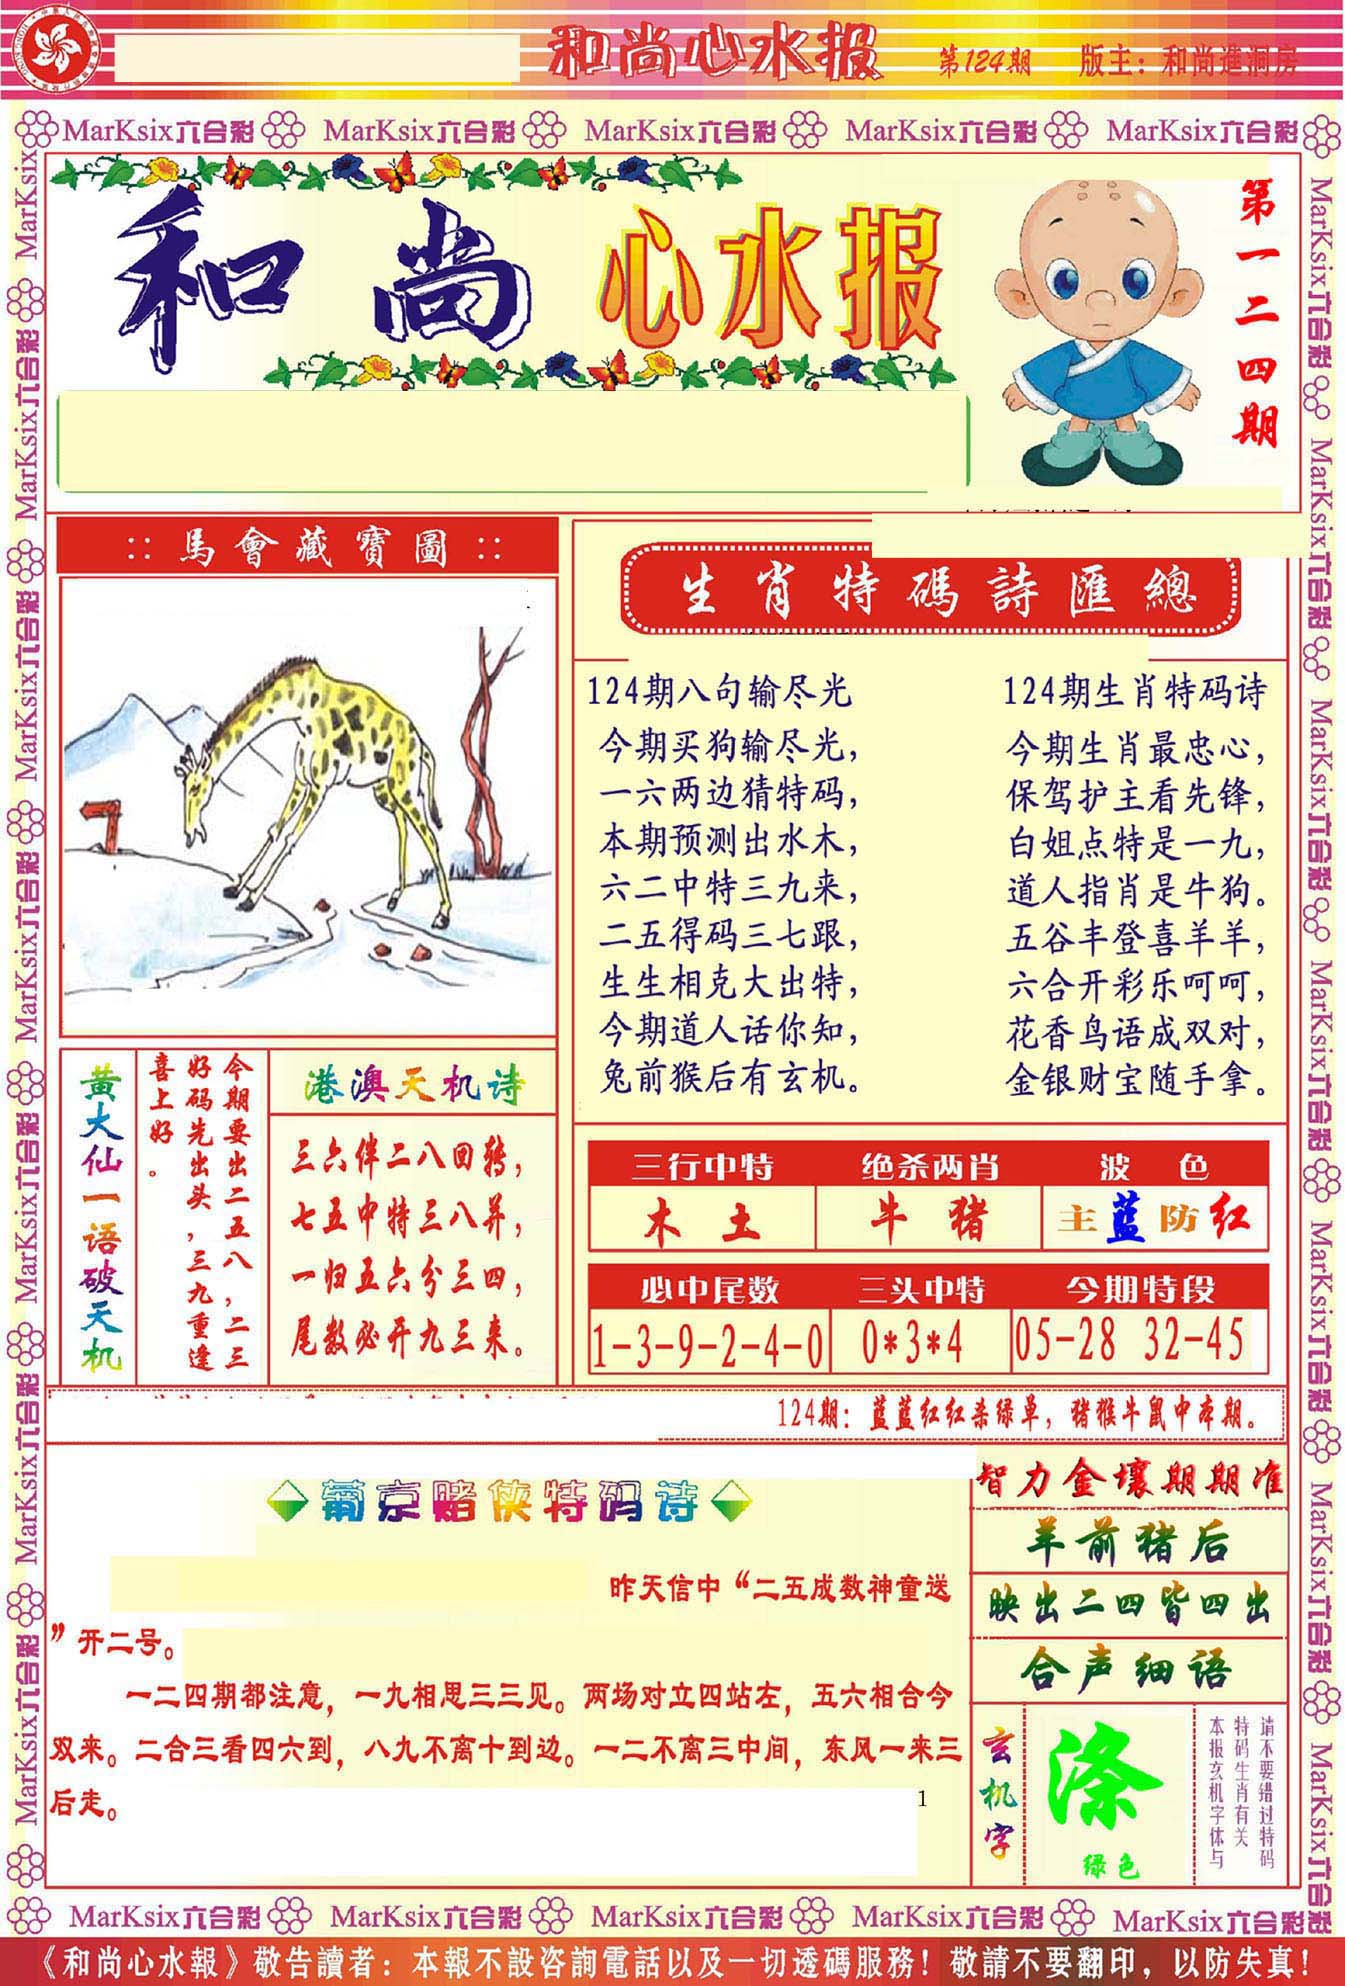 和尚心水报 第124期 版主：和尚進洞房
MarKsix六合彩 MarKsix六合彩 MarKsix六合彩 MarKsix六合彩 MarKsix六合彩
和尚心水报
第一二四期
::馬會藏寶圖::
生肖特碼詩匯總
124期八句输尽光
今期买狗输尽光，
一六两边猜特码，
本期预测出水木，
六二中特三九来，
二五得码三七跟，
生生相克大出特，
今期道人话你知，
兔前猴后有玄机。
124期生肖特码诗
今期生肖最忠心，
保驾护主看先锋，
白姐点特是一九，
道人指肖是牛狗。
五谷丰登喜羊羊，
六合开彩乐呵呵，
花香鸟语成双对，
金银财宝随手拿。
黄大仙一语破天机
今期要出二五八，二三
好码先出头，三九重逢
喜上好。
港澳天机诗
三六伴二八回转，
七五中特三八并，
一归五六分三四，
尾数必开九三来。
三行中特 绝杀两肖 波色
木土 牛猪 主蓝防红
必中尾数 三头中特 今期特段
1-3-9-2-4-0 0*3*4 05-28 32-45
124期：蓝蓝红红杀绿单，猪猴牛鼠中本期。
葡京赌侠特码诗
昨天信中“二五成数神童送
”开二号。
一二四期都注意，一九相思三三见。两场对立四站左，五六相合今
双来。二合三看四六到，八九不离十到边。一二不离三中间，东风一来三
后走。
1
智力金壤期期准
羊前猪后
映出二四皆四出
合声细语
玄机字
涤
绿色
请不要错过特码
特码生肖有关
本报玄机字体与
MarKsix六合彩 MarKsix六合彩 MarKsix六合彩 MarKsix六合彩 MarKsix六合彩
《和尚心水報》敬告讀者：本報不設咨詢電話以及一切透碼服務！敬請不要翻印，以防失真！
MarKsix六合彩 MarKsix六合彩 MarKsix六合彩 MarKsix六合彩 MarKsix六合彩 MarKsix六合彩
MarKsix六合彩 MarKsix六合彩 MarKsix六合彩 MarKsix六合彩 MarKsix六合彩 MarKsix六合彩